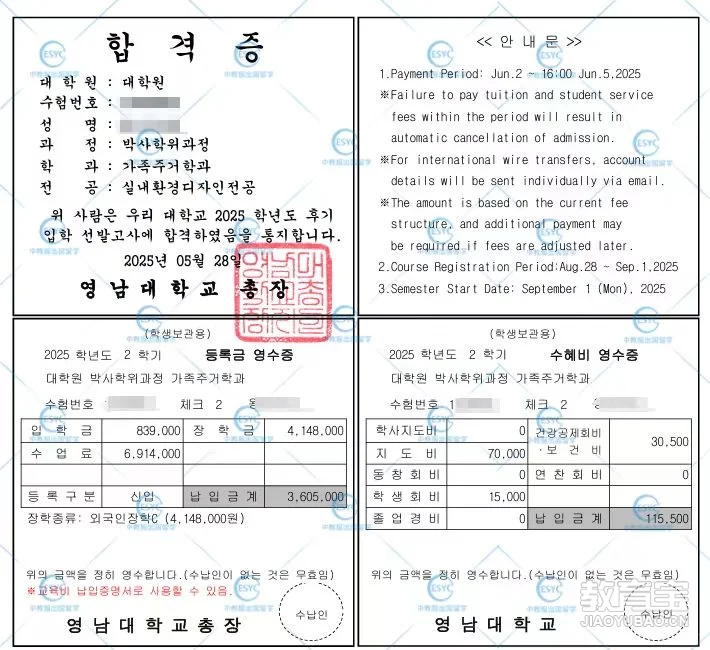 합 격 증
대 학 원 : 대학원
수험번호 :
성 명 :
과 정 : 박사학위과정
학 과 : 가족주거학과
전 공 : 실내환경디자인전공
위 사람은 우리 대학교 2025 학년도 후기
입학 선발고사에 합격하였음을 통지합니다.
2025년 05월 28일
영남대학교총장
<< 안 내 문 >>
1.Payment Period: Jun.2 ~ 16:00 Jun.5,2025
※Failure to pay tuition and student service
fees within the period will result in
automatic cancellation of admission.
※For international wire transfers, account
details will be sent individually via email.
※The amount is based on the current fee
structure, and additional payment may
be required if fees are adjusted later.
2.Course Registration Period:Aug.28 ~ Sep.1,2025
3.Semester Start Date: September 1 (Mon), 2025
(학생보관용)
2025 학년도 2 학기 등록금 영수증
대학원 박사학위과정 가족주거학과
수험번호 체크 2
입 학 금 839,000 장 학 금 4,148,000
수 업 료 6,914,000
등 록 구 분 신입 납 입 금 계 3,605,000
장학종류: 외국인장학C (4,148,000원)
위의 금액을 정히 영수합니다.(수납인이 없는 것은 무효임)
※교육비 납입증명서로 사용할 수 있음.
수납인
영남대학교총장
(학생보관용)
2025 학년도 2 학기 수혜비 영수증
대학원 박사학위과정 가족주거학과
수험번호 1 체크 2
학사지도비 0 건강공제회비·보건비 30,500
지 도 비 70,000
동 창 회 비 0 연 찬 회 비 0
학 생 회 비 15,000
졸 업 경 비 0 납 입 금 계 115,500
위의 금액을 정히 영수합니다.(수납인이 없는 것은 무효임)
수납인
영남대학교
ESYC
中教服出国留学
教育宝
JIAOYUBAO.CN